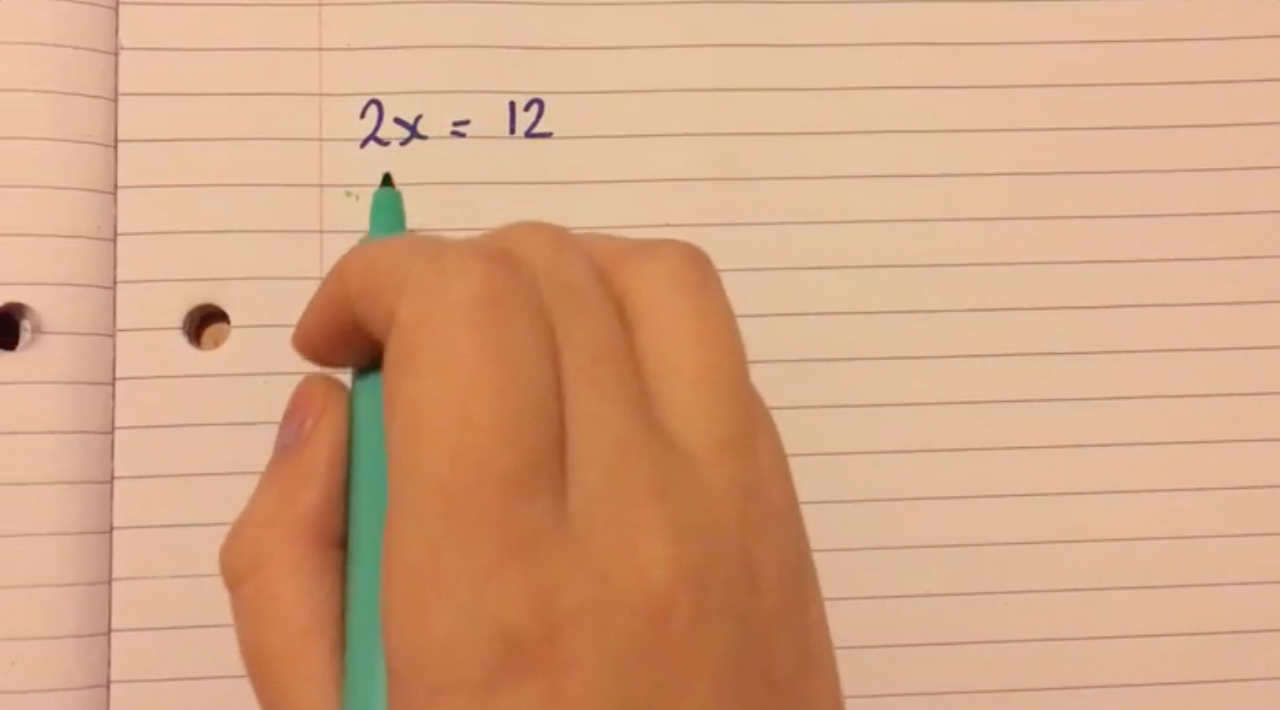 2x = 12